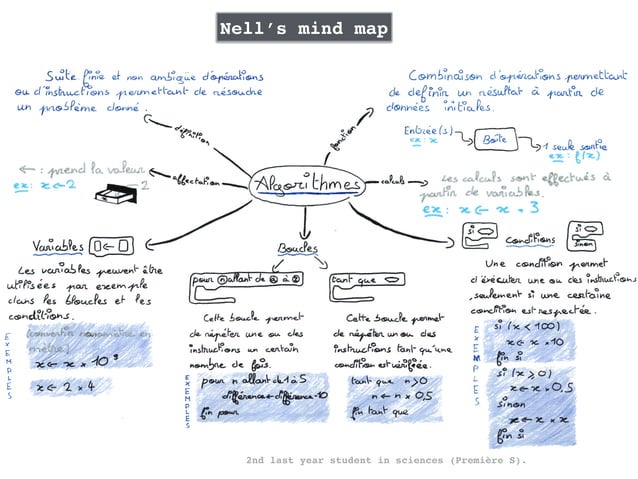 Nell's mind map
Suite finie et non ambigüe d'opérations
ou d'instructions permettant de résoudre
un problème donné.
définition
Combinaison d'opérations permettant
de définir un résultat à partir de
données initiales.
fonction
Entrée(s)
ex : x
Boîte
1 seule sortie
ex : f(x)
← : prend la valeur
ex : x ← 2
2
affectation
Algorithmes
calculs
Les calculs sont effectués à
partir de variables.
ex : x ← x + 3
Variables
Les variables peuvent être
utilisées par exemple
dans les bloucles et les
conditions.
EXEMPLES
(convertir nanomètre en
mètre)
x ← x × 10⁹
x ← 2 × 4
Boucles
pour n allant de 1 à 2
Cette boucle permet
de répéter une ou des
instructions un certain
nombre de fois.
EXEMPLES
pour n allant de 1 à 5
différence ← différence - 10
fin pour
tant que
Cette boucle permet
de répéter un ou des
instructions tant qu'une
condition est vérifiée.
tant que n > 0
n ← n × 0,5
fin tant que
si
Conditions
si
sinon
Une condition permet
d'éxécuter une ou des instructions
, seulement si une certaine
condition est respectée.
EXEMPLES
si (x < 100)
x ← x × 10
fin si
si (x ⩾ 0)
x ← x × 0,5
sinon
x ← x × x
fin si
2nd last year student in sciences (Première S).